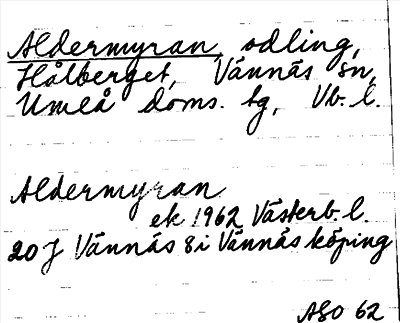 Aldermyran, odling,
Hålberget, Vännäs sn,
Umeå doms. tg, Vb. l.
Aldermyran
ek 1962 Västerb. l.
20 J Vännäs 8 i Vännäs köping
ASO 62